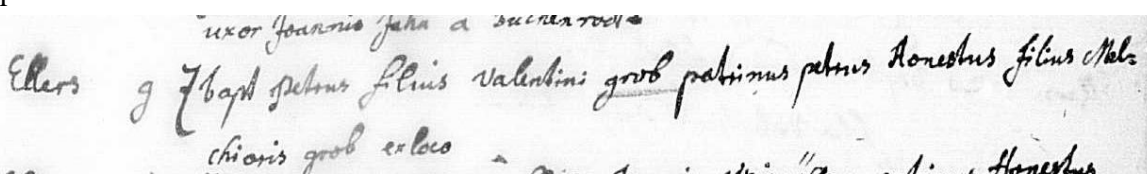 uxor Joannis Jahn a Buchenrode
Ellers 9 7bapt petrus filius Valentini grob patrinus petrus Honestus filius Mel=
chioris grob ex loco
Honestus